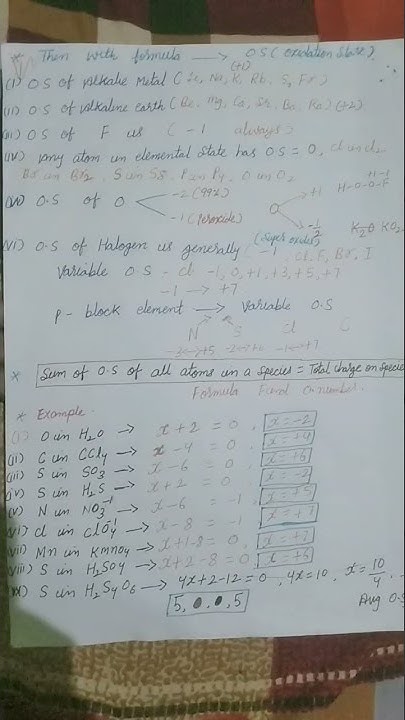 * Then with formula → O.S (Oxidation State)
(+1)
(i) O.S of Alkalie Metal (Li, Na, K, Rb, S, Fr)
(ii) O.S of Alkaline earth (Be, Mg, Ca, Sr, Ba, Ra) (+2)
(iii) O.S of F is (-1 always)
(iv) Any atom in elemental state has O.S = 0, Cl in Cl2
Br in Br2, S in S8, P in P4, O in O2
(v) O.S of O
-2 (99%)
-1 (Peroxide)
O
+1
H-O-O-F
-1/2
K2O KO2
(Super oxide)
(vi) O.S of Halogen is generally (-1 Cl, F, Br, I
Variable O.S - Cl -1, 0, +1, +3, +5, +7
-1 → +7
P - block element → Variable O.S
N S Cl C
-3→+5 -2→+6 -1→+7
* Sum of O.S of all atoms in a species = Total charge on species
Formula Find O.number
* Example
(i) O in H2O → x+2 = 0, x=-2
(ii) C in CCl4 → x-4 = 0, x=+4
(iii) S in SO3 → x-6 = 0, x=+6
(iv) S in H2S → x+2 = 0 x=-2
(v) N in NO3-1 → x-6 = -1, x=+5
(vi) Cl in ClO4-1 → x-8 = -1 x=+7
(vii) Mn in KMnO4 → x+1-8 = 0, x=+7
(viii) S in H2SO4 → x+2-8 = 0, x=+6
(ix) S in H2S4O6 → 4x+2-12=0, 4x=10, x=10/4
5, 0, 0, 5
Avg O.S